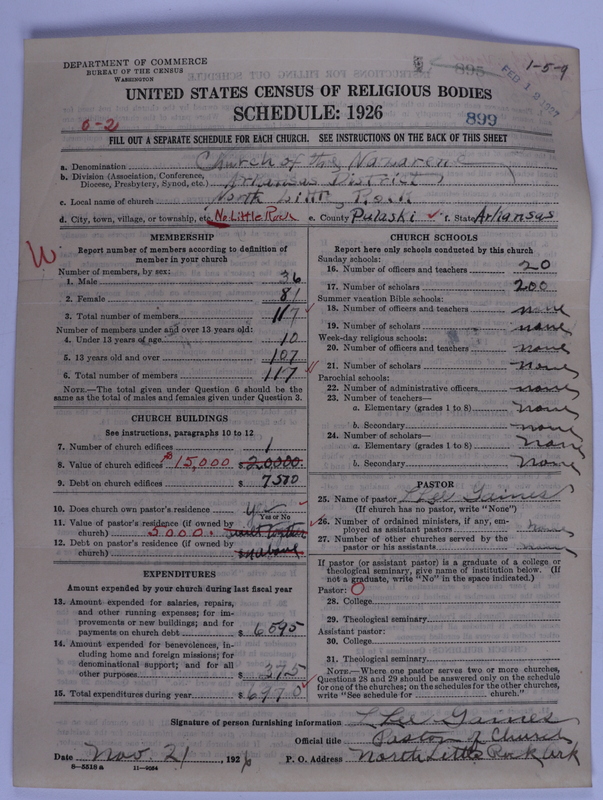 DEPARTMENT OF COMMERCE
BUREAU OF THE CENSUS
WASHINGTON
895
FEB 12 1927
1-5-9
UNITED STATES CENSUS OF RELIGIOUS BODIES
SCHEDULE: 1926
899
0-2
FILL OUT A SEPARATE SCHEDULE FOR EACH CHURCH. SEE INSTRUCTIONS ON THE BACK OF THIS SHEET
a. Denomination Church of the Nazarene
b. Division (Association, Conference, Diocese, Presbytery, Synod, etc.) Arkansas District
c. Local name of church North Little Rock
d. City, town, village, or township, etc. No. Little Rock e. County Pulaski f. State Arkansas
MEMBERSHIP
Report number of members according to definition of member in your church
Number of members, by sex:
1. Male 36
2. Female 81
3. Total number of members 117
Number of members under and over 13 years old:
4. Under 13 years of age 10
5. 13 years old and over 107
6. Total number of members 117
NOTE.—The total given under Question 6 should be the same as the total of males and females given under Question 3.
CHURCH BUILDINGS
See instructions, paragraphs 10 to 12
7. Number of church edifices 1
8. Value of church edifices $15,000 20,000.
9. Debt on church edifices $ 7500
10. Does church own pastor's residence yes
Yes or No
11. Value of pastor's residence (if owned by church) 5000.
12. Debt on pastor's residence (if owned by church)
EXPENDITURES
Amount expended by your church during last fiscal year
13. Amount expended for salaries, repairs, and other running expenses; for improvements or new buildings; and for payments on church debt $ 6595
14. Amount expended for benevolences, including home and foreign missions; for denominational support; and for all other purposes $ 375
15. Total expenditures during year $ 6970
CHURCH SCHOOLS
Report here only schools conducted by this church
Sunday schools:
16. Number of officers and teachers 20
17. Number of scholars 200
Summer vacation Bible schools:
18. Number of officers and teachers none
19. Number of scholars none
Week-day religious schools:
20. Number of officers and teachers none
21. Number of scholars none
Parochial schools:
22. Number of administrative officers none
23. Number of teachers—
a. Elementary (grades 1 to 8) none
b. Secondary none
24. Number of scholars—
a. Elementary (grades 1 to 8) none
b. Secondary none
PASTOR
25. Name of pastor L Lee Gaines
(If church has no pastor, write "None")
26. Number of ordained ministers, if any, employed as assistant pastors none
27. Number of other churches served by the pastor or his assistants none
If pastor (or assistant pastor) is a graduate of a college or theological seminary, give name of institution below. (If not a graduate, write "No" in the space indicated.)
Pastor: O
28. College
29. Theological seminary
Assistant pastor:
30. College
31. Theological seminary
NOTE.—Where one pastor serves two or more churches, Questions 28 and 29 should be answered only on the schedule for one of the churches; on the schedules for the other churches, write "See schedule for ______ church."
Signature of person furnishing information L Lee Gaines
Official title Pastor of Church
Date Nov. 21, 1926 P. O. Address North Little Rock Ark
8-5518a 11-9064